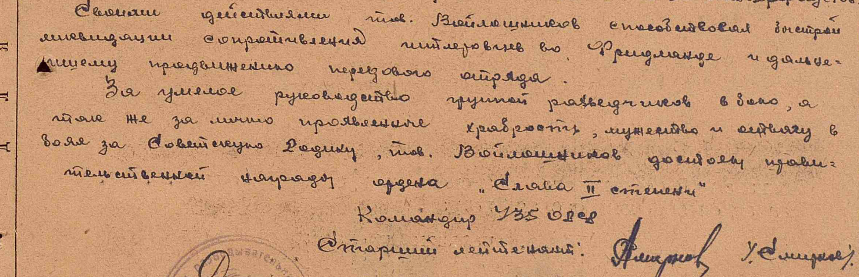 Своими действиями тов. Войлошников способствовал быстрой
ликвидации сопротивления гитлеровцев во Фридланде и дальне-
йшему продвижению передового отряда.
За умелое руководство группой разведчиков в бою, а
так же за лично проявленные храбрость, мужество и отвагу в
боях за Советскую Родину, тов. Войлошников достоен прави-
тельственной награды ордена „Слава II степени"
Командир
Старший лейтенант: Смирнов /Смирнов/.